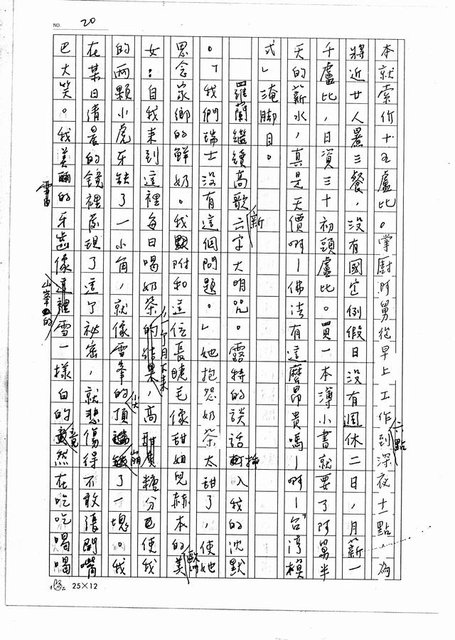 NO. 20
本就索价十五盧比。掌廚阿舅從早上六點工作到深夜十點，為
將近廿人署三餐，沒有國定例假日沒有週休二日，月薪一
千盧比，日資三十初頭盧比。買一本薄小書就要了阿舅半
天的薪水，真是天價啊—佛法有這麼昂貴嗎—啊—台灣模
式」淹腳目。
羅蘭繼續高歌六字大明咒。露特的談話插入我的沈默
。「我們瑞士沒有這個問題。」她抱怨奶茶太甜了，使她
思念家鄉的鮮奶。我附和這位長睫毛像甜姐兒赫本的美
女：自我來到這裡，每日喝奶茶的結果，高甜度糖分已使我
的兩顆小虎牙缺了一小角，就像雪峯的頂尖崩了一塊。我
在某日清晨的鏡裡發現了這了祕密，就悲傷得不敢張開嘴
巴大笑。我美麗的牙齒像山峯上的雪一樣白的竟然在吃吃喝喝
25×12